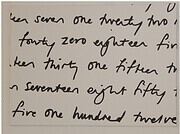 seven one twenty two
fourty zero eighteen five
thirty one fifteen
seventeen eight fifty
five one hundred twelve